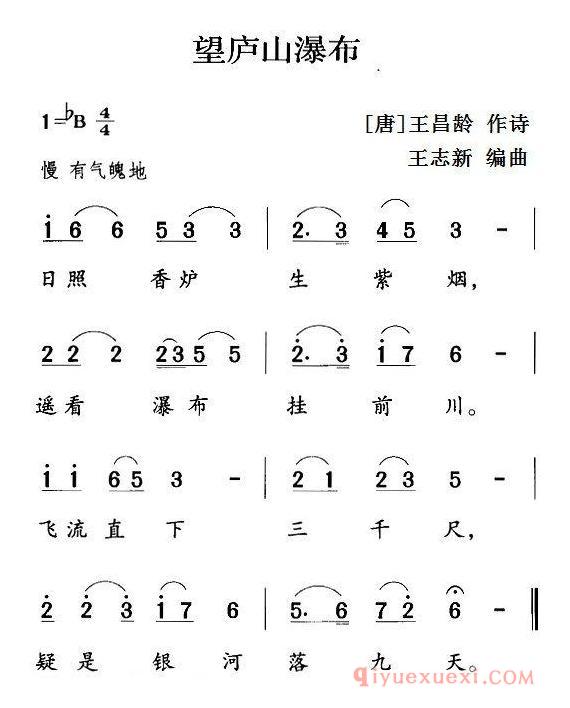 望庐山瀑布
1=♭B 4/4
[唐]王昌龄 作诗
王志新 编曲
慢 有气魄地
i 6 6 5 3 3 | 2. 3 4 5 3 - |
日照 香炉 生 紫 烟,
2 2 2 2 3 5 5 5 | 2̇. 3̇ i 7 6 - |
遥看 瀑布 挂 前 川。
i i 6 5 3 - | 2 1 2 3 5 - |
飞流 直 下 三 千 尺,
2̇ 2̇ 3̇ i 7 6 | 5. 6 7 2̇ 6 - ‖
疑是 银 河 落 九 天。
qiyuexuexi.com